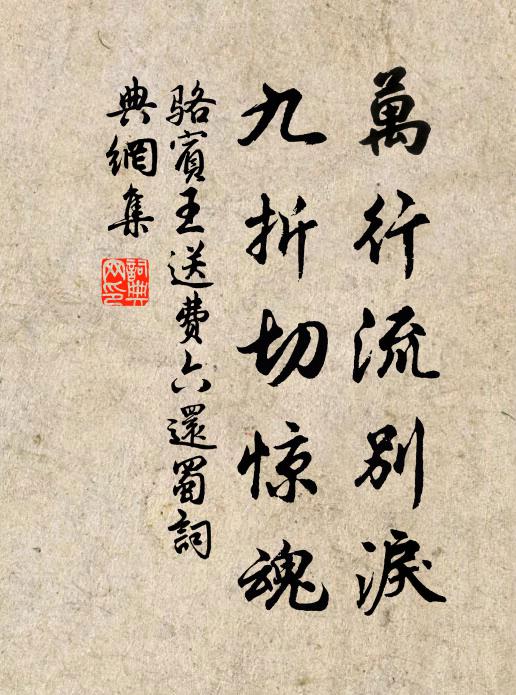 萬行流別淚
九折切惊魂
駱賓王送費六還蜀詞
典網集
詞典
网印